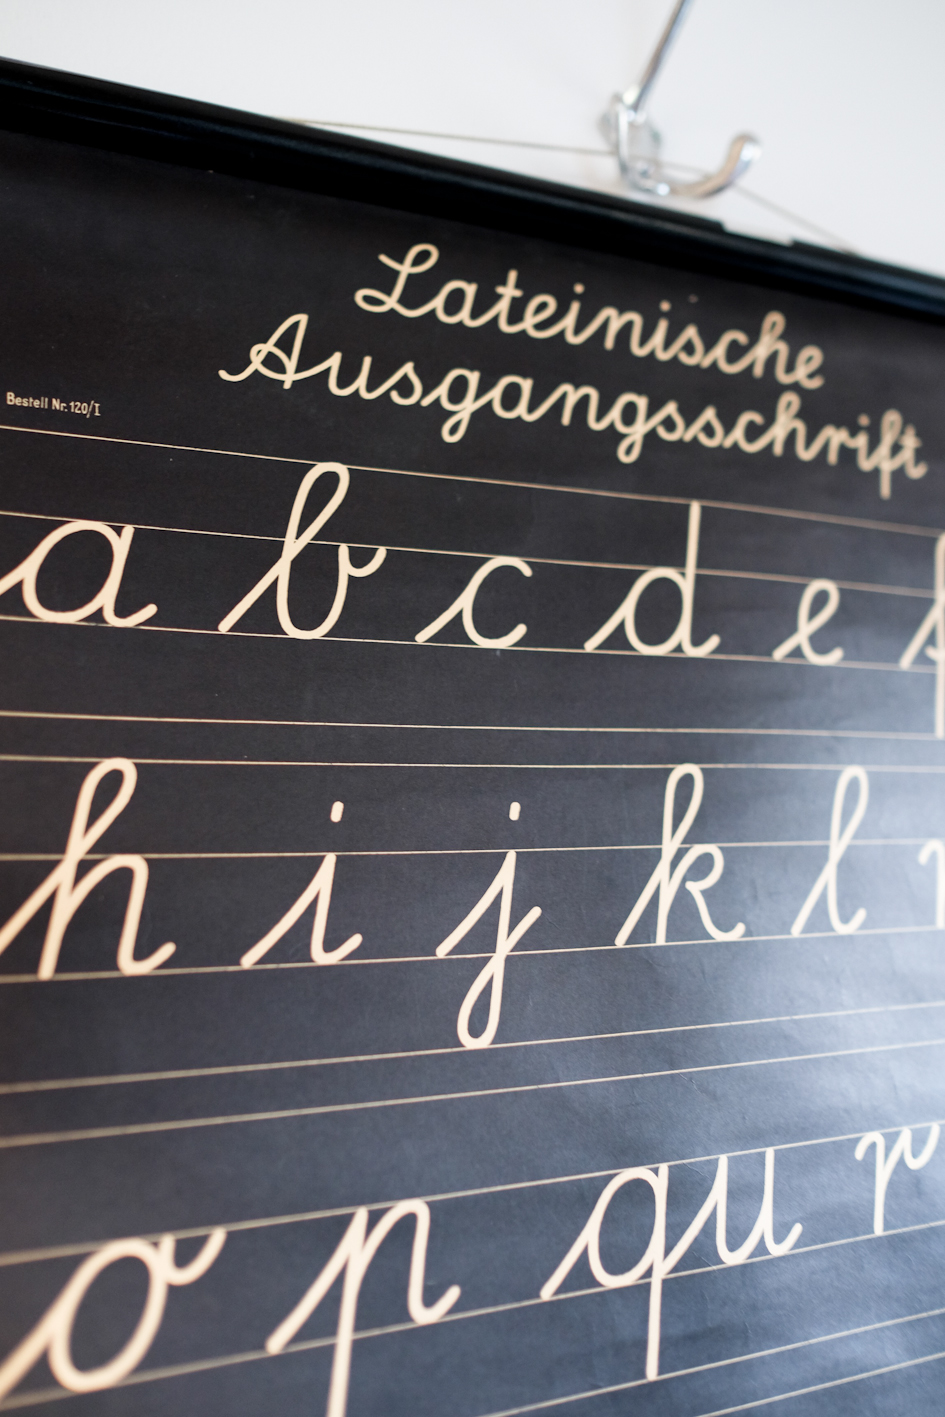 Lateinische
Ausgangsschrift
Bestell Nr. 120/I
a b c d e f
h i j k l
o p qu r